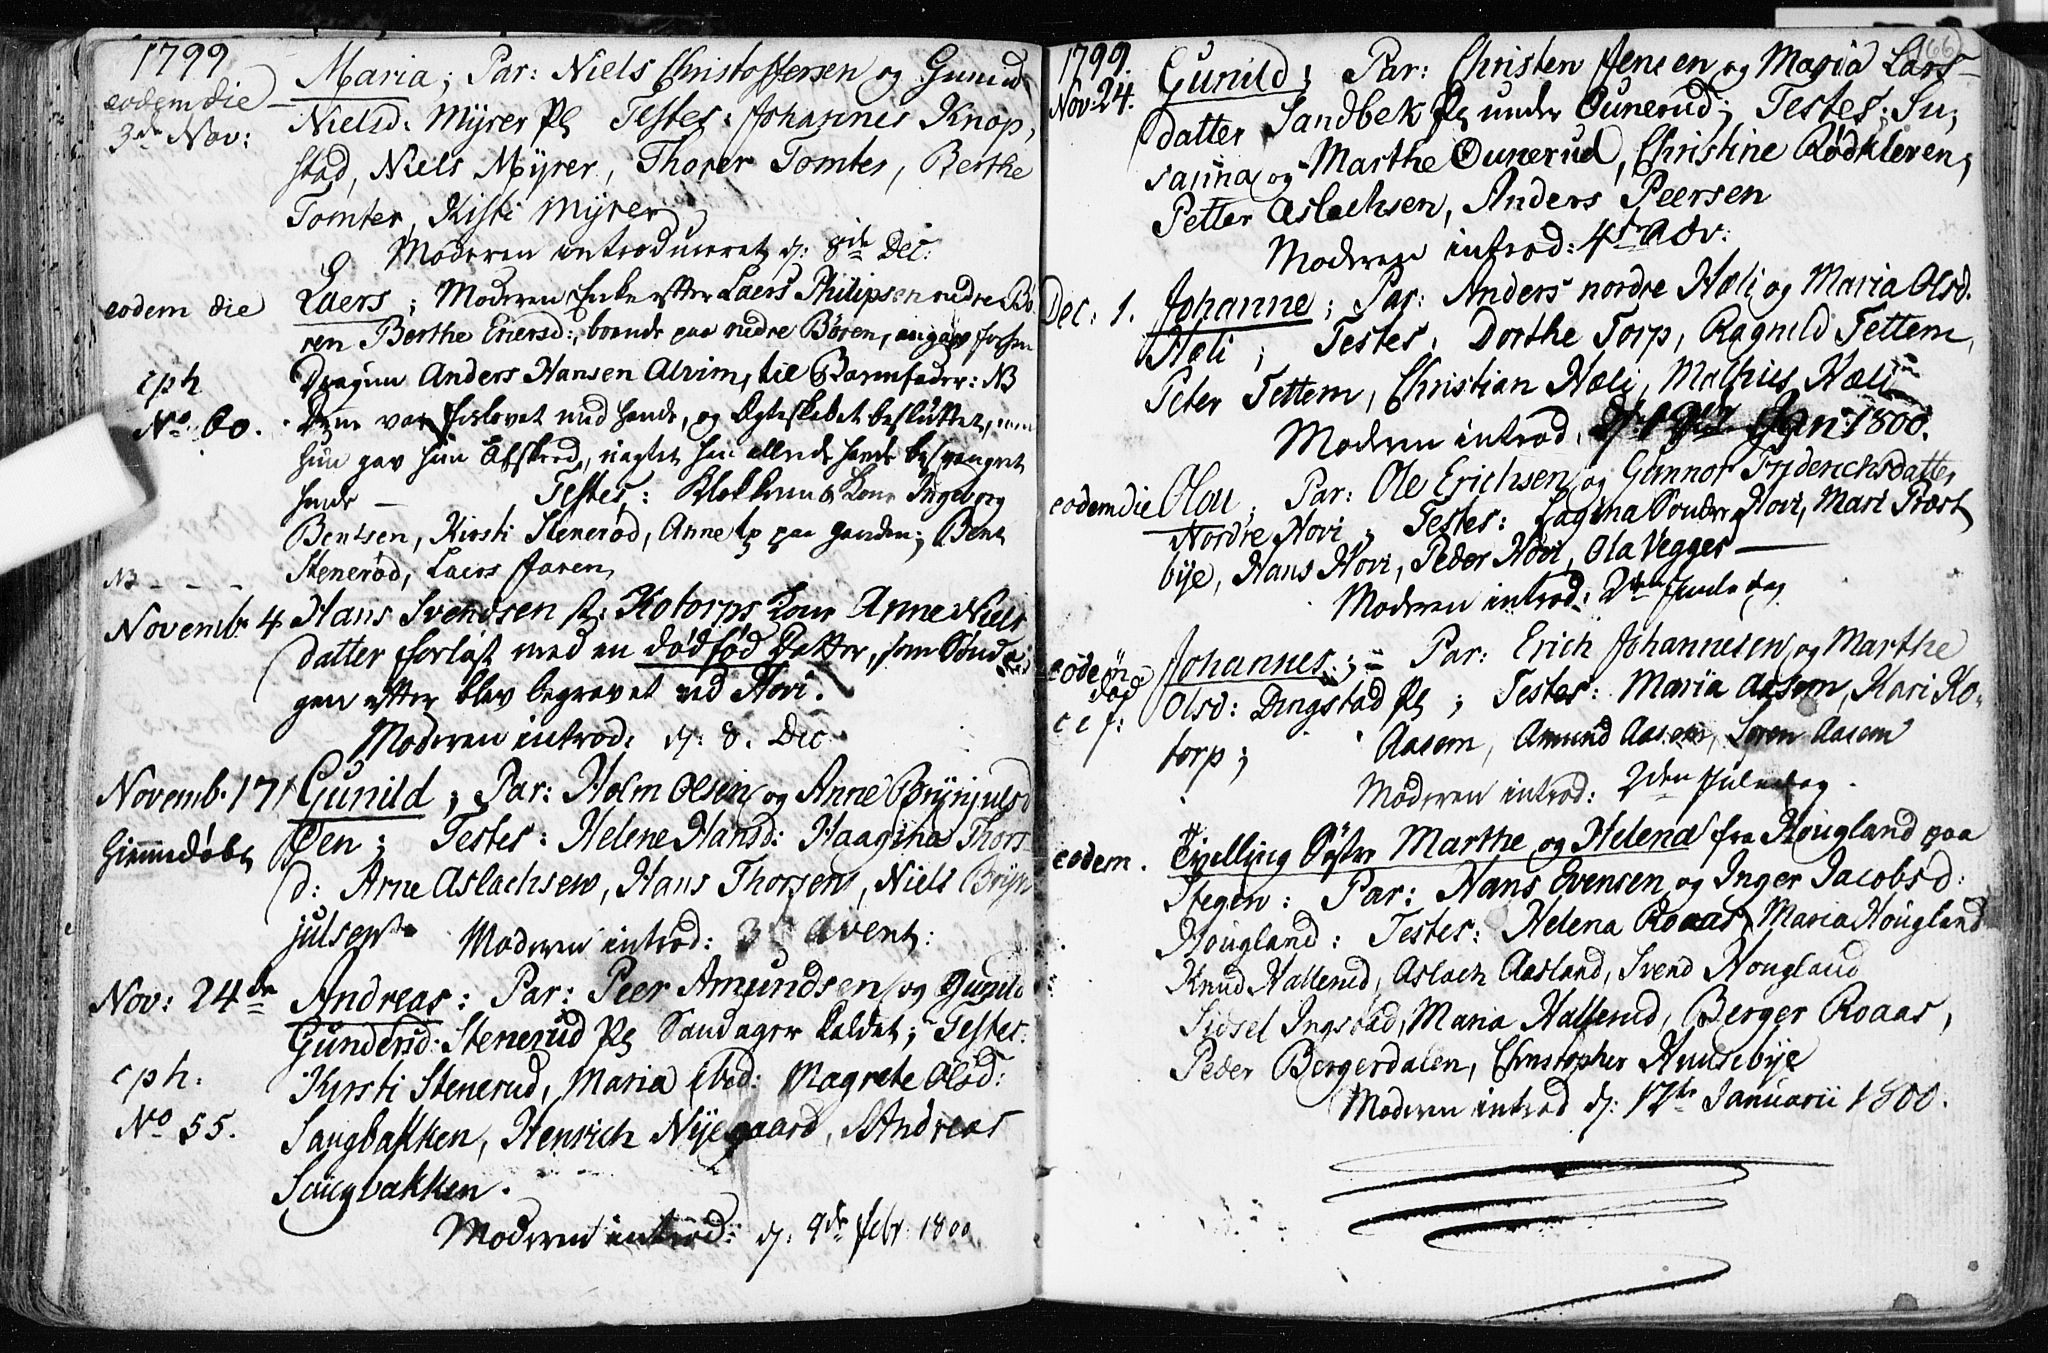 1799
eodem die
3de Nov:
Maria; Par: Niels Christoffersen og Gunild
Nielsd: Myrer Pl Testes: Johannes Knop,
stad, Niels Myrer, Thorer Tomter, Berthe
Tomter, Kisti Myrer
Moderen introduceret d: 8de Dec:
eodem die
Laers; Moderen Enke efter Laers Philipsen nedre Bö
ren Berthe Eriersd:, boende paa nedre Bören, angav
cph
Dragun Anders Hansen Alvim, til Barnefader: NB
No. 60.
Denne var forlovet med hende, og Ægteskabet besluttet,
hun gav ham Afskeed, nagtet han allerede havde besvangret
hende — Testes: Klokkerens Kone Ingeborg
Bentsen, Kirsti Stenerød, Anne paa ; Bent
NB - - -
Stenerød, Laers
Novemb. 4
Hans Svendsen Kotorps Kone Anne Niels
datter forløst med en dødfød Datter, som Sönda
gen efter blev begravet ved Hovi.
Moderen introd: d: 8. Dec
Novemb. 17
Gunild; Par: Holm Olsen og Anne Brynjulsd
hiemmedøbt
Øen; Testes: Helene Hansd: Haagina Thors
d: Arne Aslachsen, Hans Thorsen, Niels Bryn
julsen Moderen introd: 3 Advent:
Nov: 24de
Andreas: Par: Peer Amundsen og Gunild
Gundersd: Stenerud Pl Sandager kaldet; Testes:
cph.
Kirsti Stenerud, Maria ibid: Magrete Olsd:
No 55.
Saugbakken, Henrich Nyegaard, Andreas
Saugbakken.
Moderen introd: d: 9de febr 1800
66
1799.
Nov: 24.
Gunild; Par: Christen Jensen og Maria Lars
datter Sandbek Pl under Ounerud; Testes: Su,
sanna og Marthe Ounerud, Christine Rödkleven,
Petter Aslachsen, Anders Peersen
Moderen introd: 4de Adv:
Dec: 1.
Johanne; Par: Anders nordre Hæli og Maria Olsd.
Hæli; Testes: Dorthe Torp, Ragnild Tettem,
Peter Tettem, Christian Hæli, Mathius Hæli
Moderen introd. Jan: 1800.
eodem die
Olau; Par: Ole Erichsen og Gunnor Friderichsdatter
Nordre Hovi; Testes: Hovi, Mari Præst
bye, Hans Hovi, Peder Hovi, Ola Vegger —
Moderen introd: 2den Juledag
eodem
Johannes; Par: Erich Johannesen og Marthe
Olsd: Dingstad Pl; Testes: Maria Aasem, Kari Ko,
torp; Aasem, Amund Aasem, Sören Aasem
Moderen introd: 2den Juledag.
eodem.
Tvilling Søstre Marthe og Helena fra Hougland paa
Stegen: Par: Hans Evensen og Inger Jacobsd:
Hougland: Testes: Helena Roaas, Maria Hougland
Knud Hallerud, Aslach Aasland, Svend Hougland
Sidsel Ingstad, Maria Hallerud, Berger Roaas,
Peder Bergerdalen, Christopher Huusebye
Moderen introd d: 12te Januarii 1800.